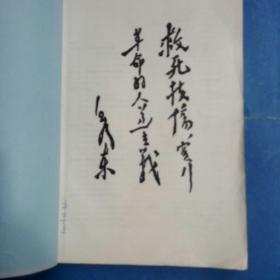 救死扶伤,实行
革命的人道主义
毛泽东